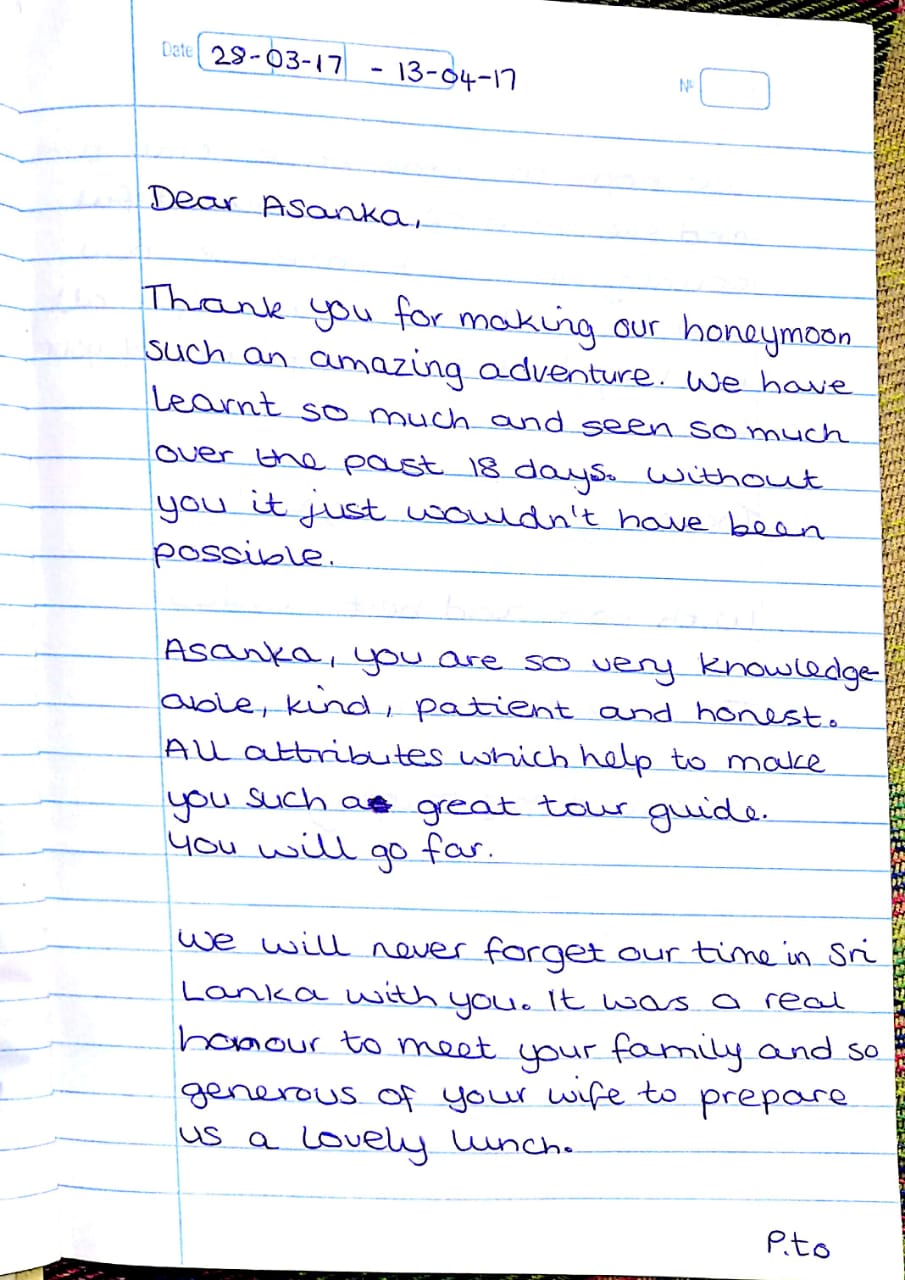 Date 28-03-17 - 13-04-17
Nº
Dear Asanka,
Thank you for making our honeymoon
such an amazing adventure. We have
learnt so much and seen so much
over the past 18 days. Without
you it just wouldn't have been
possible.
Asanka, you are so very knowledge-
able, kind, patient and honest.
All attributes which help to make
you such a great tour guide.
You will go far.
We will never forget our time in Sri
Lanka with you. It was a real
honour to meet your family and so
generous of your wife to prepare
us a lovely lunch.
P.to